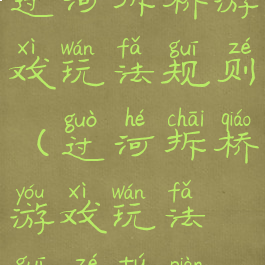 过河拆桥游
xì wán fǎ guī zé
戏玩法规则
guò hé chāi qiáo
(过河拆桥
yóu xì wán fǎ
游戏玩法
guī zé